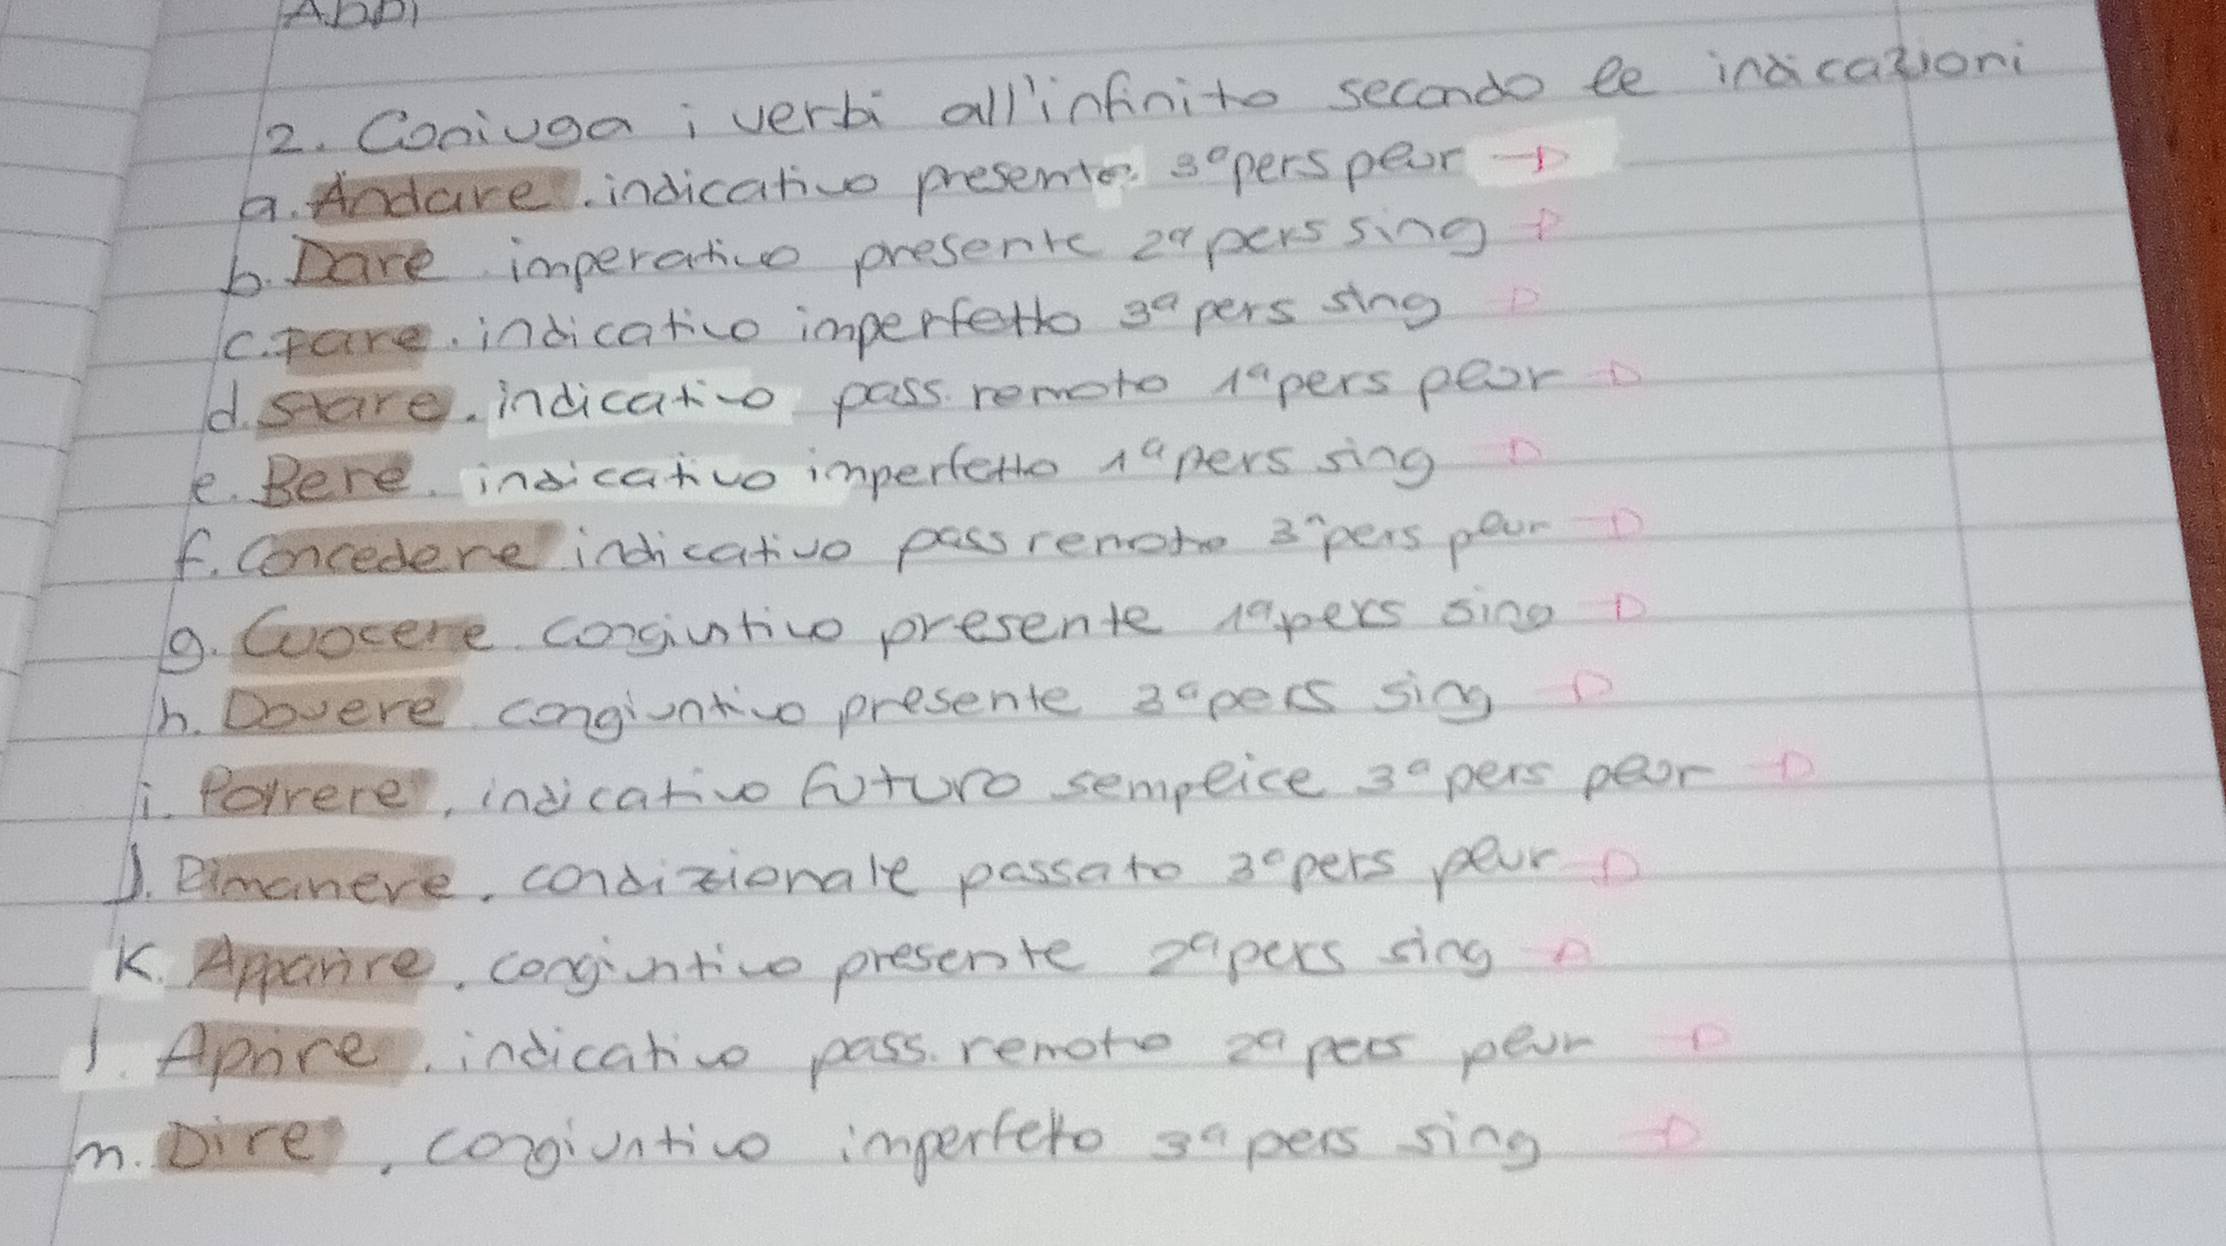 Abbi
2. Coniuga i verbi all'infinito secondo le indicazioni
a. Andare. indicativo presente 3ª pers plur →
b. Dare imperativo presente 2ª pers sing →
c. Fare. indicativo imperfetto 3ª pers sing →
d. Stare. indicativo pass. remoto 1ª pers plur →
e. Bere. indicativo imperfetto 1ª pers sing →
f. Concedere indicativo pass remoto 3ª pers plur →
g. Cuocere congiuntivo presente 1ª pers sing →
h. Dovere congiuntivo presente 3ª pers sing →
i. Porrere, indicativo futuro semplice 3ª pers plur →
J. Rimanere. condizionale passato 3ª pers plur →
K. Apparire. congiuntivo presente 2ª pers sing →
l. Aprire. indicativo pass. remoto 2ª pers plur →
m. Dire, congiuntivo imperfetto 3ª pers sing →